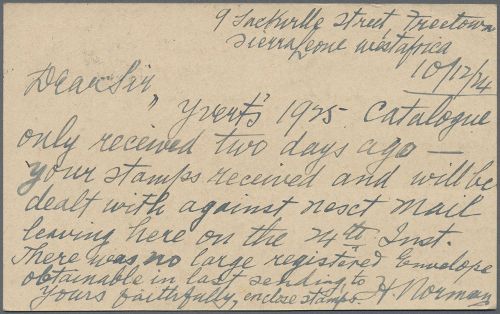 9 Sackville Street, Freetown
Sierra Leone West Africa
10/12/24
Dear Sir
" Yvert's 1925 Catalogue
only received two days ago —
your stamps received and will be
dealt with against nesct mail
leaving here on the 24th Inst.
There was no large registered Envelope
obtainable in last sending to
Yours faithfully, enclose stamps. H. Norman